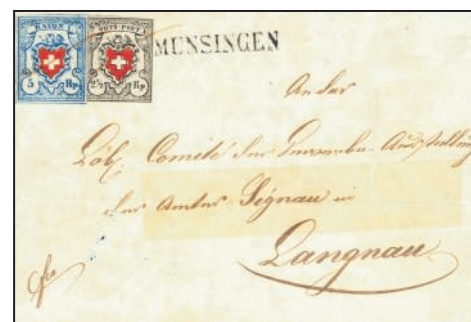 RAYON I ORTS-POST
5 Rp. 2½ Rp.
MÜNSINGEN
An das
Löbl. Comité der Gewerbe-Ausstellung
der Amtes Signau in
Langnau